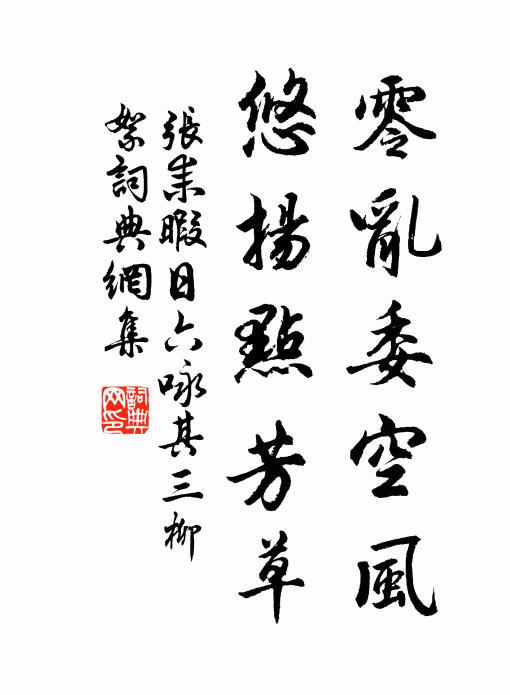 零亂委空風
悠揚點芳草
張耒暇日六咏其三柳
絮詞典網集
詞典网印